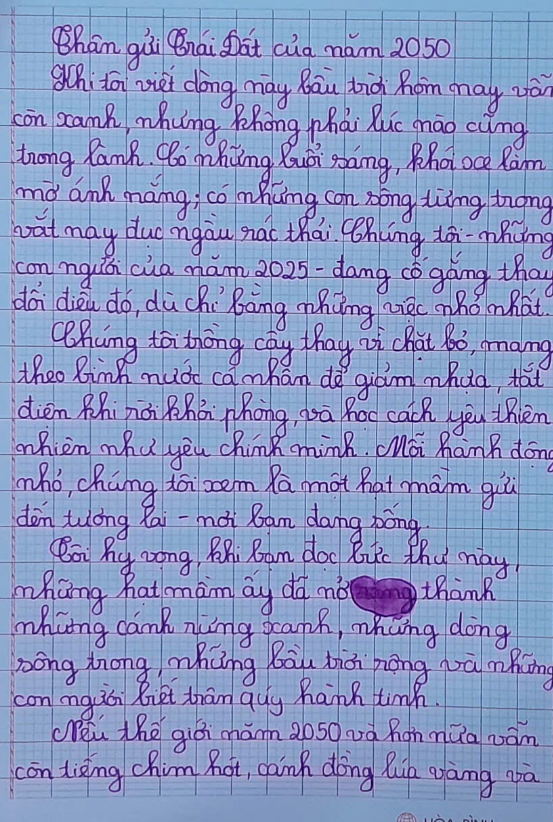 Thân gửi Trái Đất của năm 2050
Khi tôi viết dòng này bầu trời hôm nay vẫn
còn xanh, nhưng không phải lúc nào cũng
trong lành. Có những buổi sáng, khói xe làm
mờ ánh nắng; có những con sông từng trong
vắt nay đục ngầu rác thải. Chúng tôi - những
con người của năm 2025 - đang cố gắng thay
đổi điều đó, dù chỉ bằng những việc nhỏ nhất.
Chúng tôi trồng cây thay vì chặt bỏ, mang
theo bình nước cá nhân để giảm nhựa, tắt
điện khi rời khỏi phòng, và học cách yêu thiên
nhiên như yêu chính mình. Mỗi hành động
nhỏ, chúng tôi xem là một hạt mầm gửi
đến tương lai - nơi bạn đang sống.
Tôi hy vọng, khi bạn đọc bức thư này,
những hạt mầm ấy đã nở thành
những cánh rừng xanh, những dòng
sông trong, những bầu trời rộng và những
con người biết trân quý hành tinh.
Nếu thế giới năm 2050 và hơn nữa vẫn
còn tiếng chim hót, cánh đồng lúa vàng và